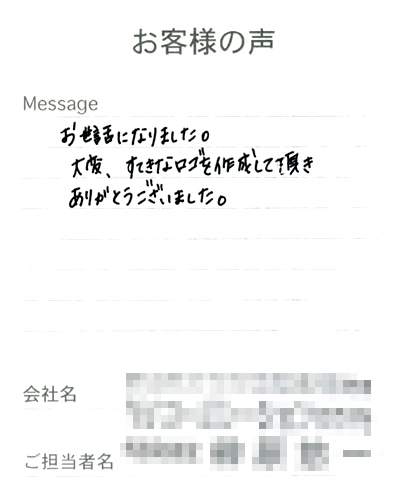 お客様の声
Message
お世話になりました。
大変、すてきなロゴを作成して頂き
ありがとうございました。
会社名
ご担当者名